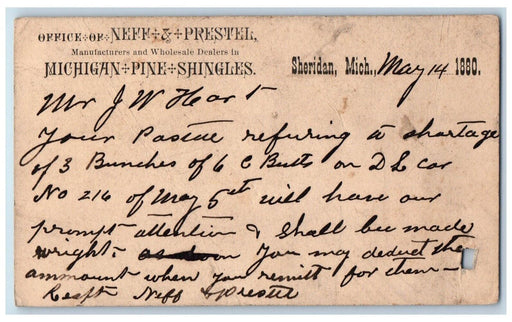 OFFICE·OF·NEFF·&·PRESTEL,
Manufacturers and Wholesale Dealers in
MICHIGAN·PINE·SHINGLES.
Sheridan, Mich., May 14 1880.
Mr J W Hart
Your Postal refuring to shortage
of 3 Bunches of 6 C Butts on D L car
No 216 of May 5st will have our
prompt attention & shall bee made
wright. You may deduct the
ammount when you remitt for them -
Respt Neff & Prestel